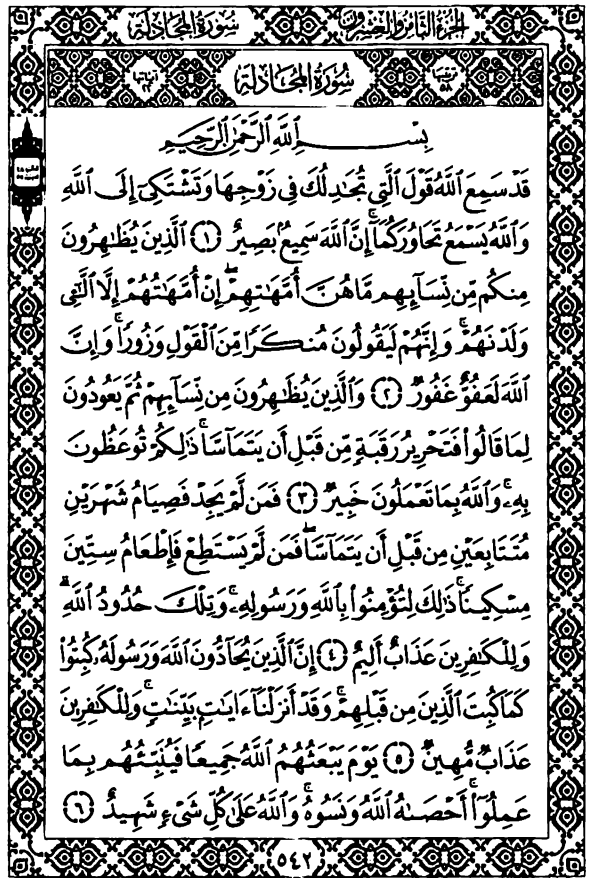 سُورَةُ المُجَادلة الجُزءُ الثَّامِنُ وَالعِشْرُونَ
ترتيبها ٥٨ سُورَةُ المُجَادلة آياتها ٢٢
بِسْمِ ٱللَّهِ ٱلرَّحْمَٰنِ ٱلرَّحِيمِ
قَدْ سَمِعَ ٱللَّهُ قَوْلَ ٱلَّتِي تُجَٰدِلُكَ فِي زَوْجِهَا وَتَشْتَكِيٓ إِلَى ٱللَّهِ
وَٱللَّهُ يَسْمَعُ تَحَاوُرَكُمَآۚ إِنَّ ٱللَّهَ سَمِيعُۢ بَصِيرٌ ۝١ ٱلَّذِينَ يُظَٰهِرُونَ
مِنكُم مِّن نِّسَآئِهِم مَّا هُنَّ أُمَّهَٰتِهِمْۖ إِنْ أُمَّهَٰتُهُمْ إِلَّا ٱلَّٰٓـِٔي
وَلَدْنَهُمْۚ وَإِنَّهُمْ لَيَقُولُونَ مُنكَرًا مِّنَ ٱلْقَوْلِ وَزُورًاۚ وَإِنَّ
ٱللَّهَ لَعَفُوٌّ غَفُورٌ ۝٢ وَٱلَّذِينَ يُظَٰهِرُونَ مِن نِّسَآئِهِمْ ثُمَّ يَعُودُونَ
لِمَا قَالُوا۟ فَتَحْرِيرُ رَقَبَةٍ مِّن قَبْلِ أَن يَتَمَآسَّاۚ ذَٰلِكُمْ تُوعَظُونَ
بِهِۦۚ وَٱللَّهُ بِمَا تَعْمَلُونَ خَبِيرٌ ۝٣ فَمَن لَّمْ يَجِدْ فَصِيَامُ شَهْرَيْنِ
مُتَتَابِعَيْنِ مِن قَبْلِ أَن يَتَمَآسَّاۖ فَمَن لَّمْ يَسْتَطِعْ فَإِطْعَامُ سِتِّينَ
مِسْكِينًاۚ ذَٰلِكَ لِتُؤْمِنُوا۟ بِٱللَّهِ وَرَسُولِهِۦۚ وَتِلْكَ حُدُودُ ٱللَّهِۗ
وَلِلْكَٰفِرِينَ عَذَابٌ أَلِيمٌ ۝٤ إِنَّ ٱلَّذِينَ يُحَآدُّونَ ٱللَّهَ وَرَسُولَهُۥ كُبِتُوا۟
كَمَا كُبِتَ ٱلَّذِينَ مِن قَبْلِهِمْۚ وَقَدْ أَنزَلْنَآ ءَايَٰتٍۭ بَيِّنَٰتٍۚ وَلِلْكَٰفِرِينَ
عَذَابٌ مُّهِينٌ ۝٥ يَوْمَ يَبْعَثُهُمُ ٱللَّهُ جَمِيعًا فَيُنَبِّئُهُم بِمَا
عَمِلُوٓا۟ۚ أَحْصَىٰهُ ٱللَّهُ وَنَسُوهُۚ وَٱللَّهُ عَلَىٰ كُلِّ شَيْءٍ شَهِيدٌ ۝٦
٥٤٢